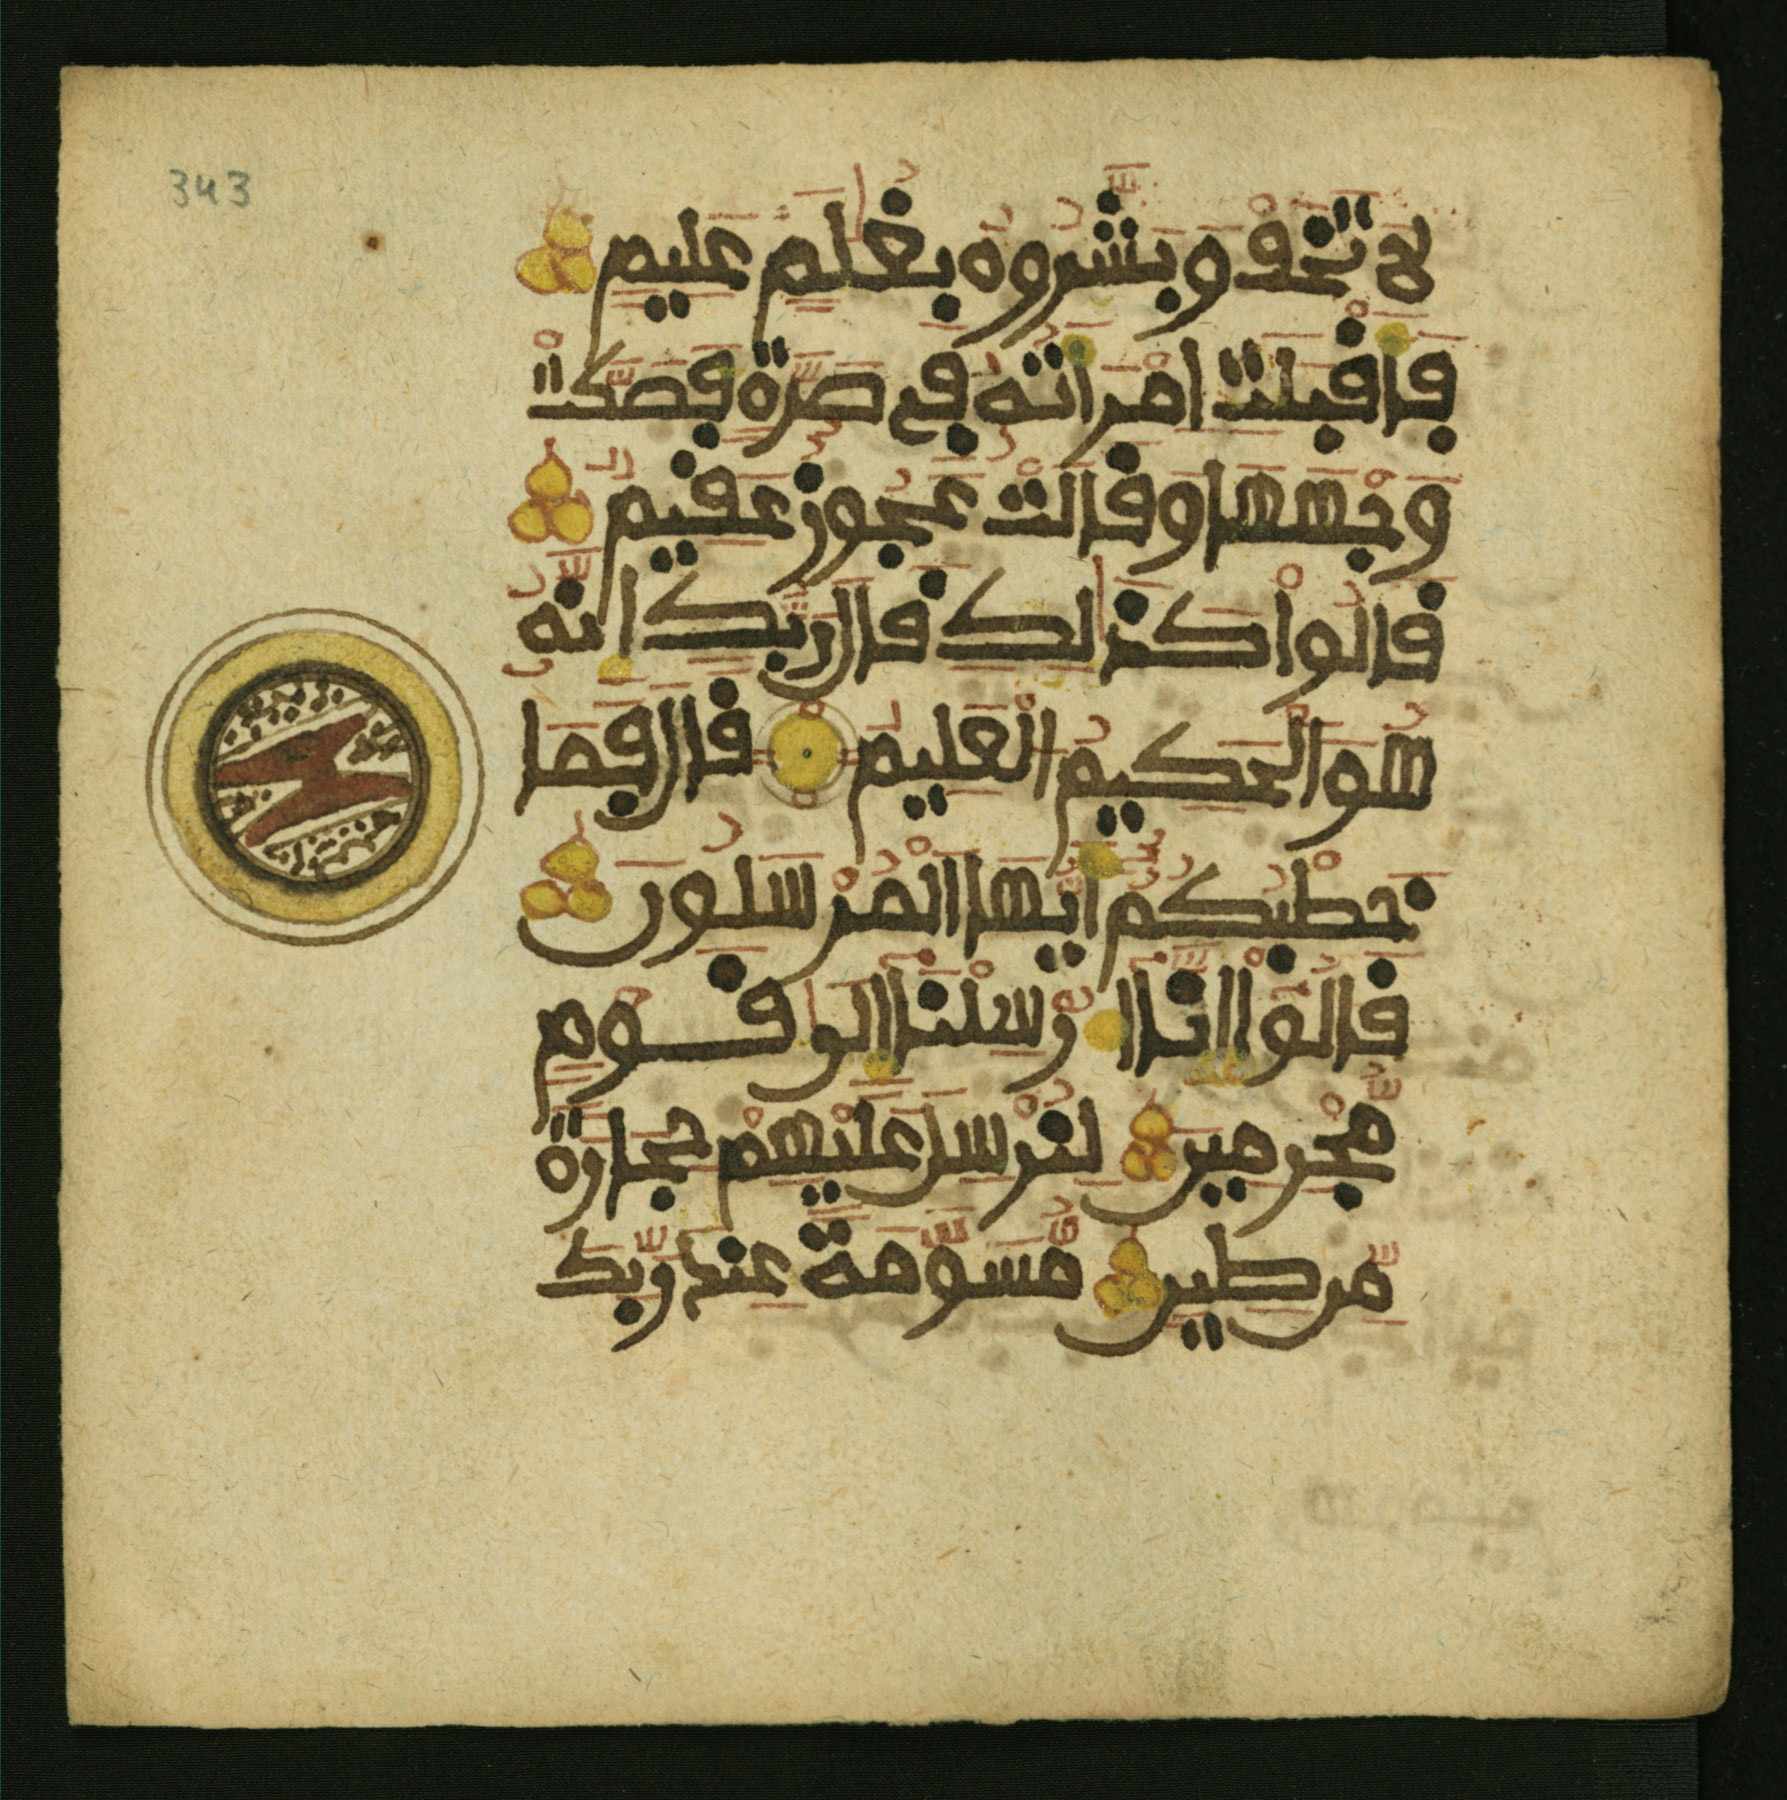 343
لا تخف وبشروه بغلم عليم
فاقبلت امراته في صرة فصكت
وجهها وقالت عجوز عقيم
قالوا كذلك قال ربك انه
هو الحكيم العليم قال فما
خطبكم ايها المرسلون
قالوا انا ارسلنا الى قوم
مجرمين لنرسل عليهم حجارة
من طين مسومة عند ربك